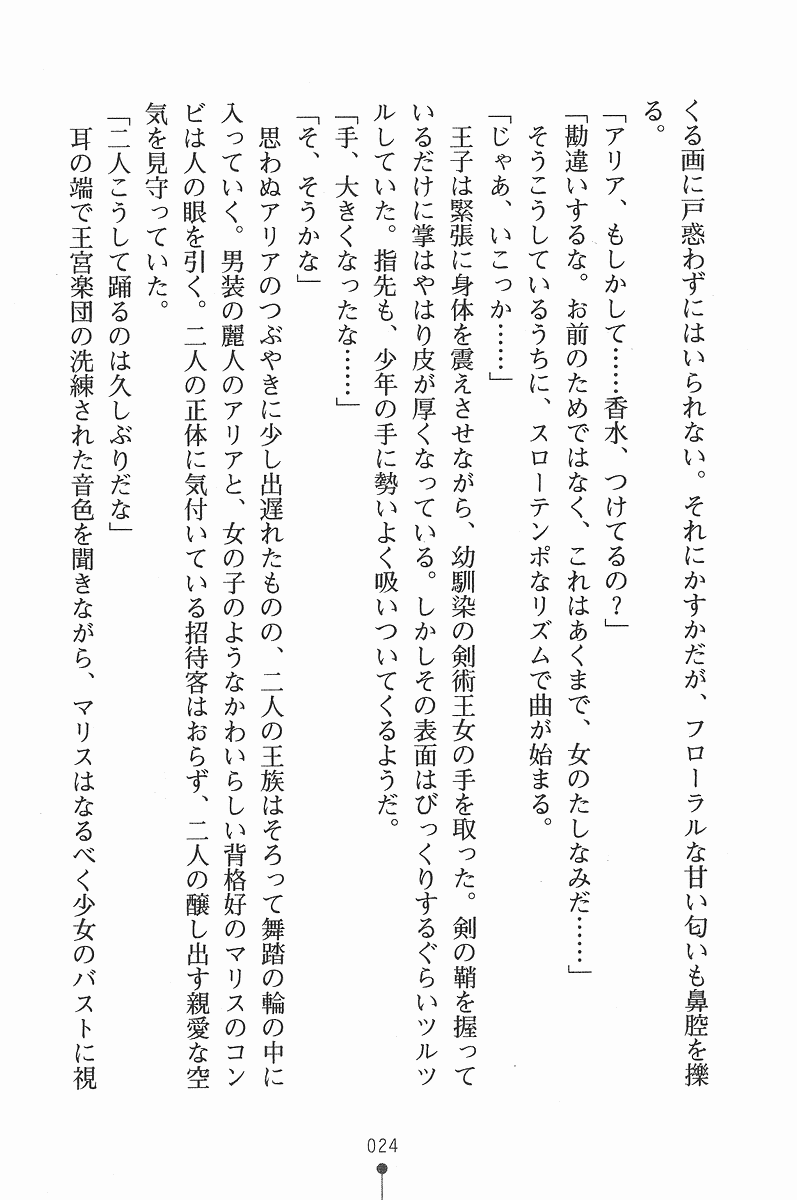 くる画に戸惑わずにはいられない。それにかすかだが、フローラルな甘い匂いも鼻腔を擽
る。
「アリア、もしかして……香水、つけてるの？」
「勘違いするな。お前のためではなく、これはあくまで、女のたしなみだ……」
そうこうしているうちに、スローテンポなリズムで曲が始まる。
「じゃあ、いこっか……」
王子は緊張に身体を震えさせながら、幼馴染の剣術王女の手を取った。剣の鞘を握って
いるだけに掌はやはり皮が厚くなっている。しかしその表面はびっくりするぐらいツルツ
ルしていた。指先も、少年の手に勢いよく吸いついてくるようだ。
「手、大きくなったな……」
「そ、そうかな」
思わぬアリアのつぶやきに少し出遅れたものの、二人の王族はそろって舞踏の輪の中に
入っていく。男装の麗人のアリアと、女の子のようなかわいらしい背格好のマリスのコン
ビは人の眼を引く。二人の正体に気付いている招待客はおらず、二人の醸し出す親愛な空
気を見守っていた。
「二人こうして踊るのは久しぶりだな」
耳の端で王宮楽団の洗練された音色を聞きながら、マリスはなるべく少女のバストに視
024